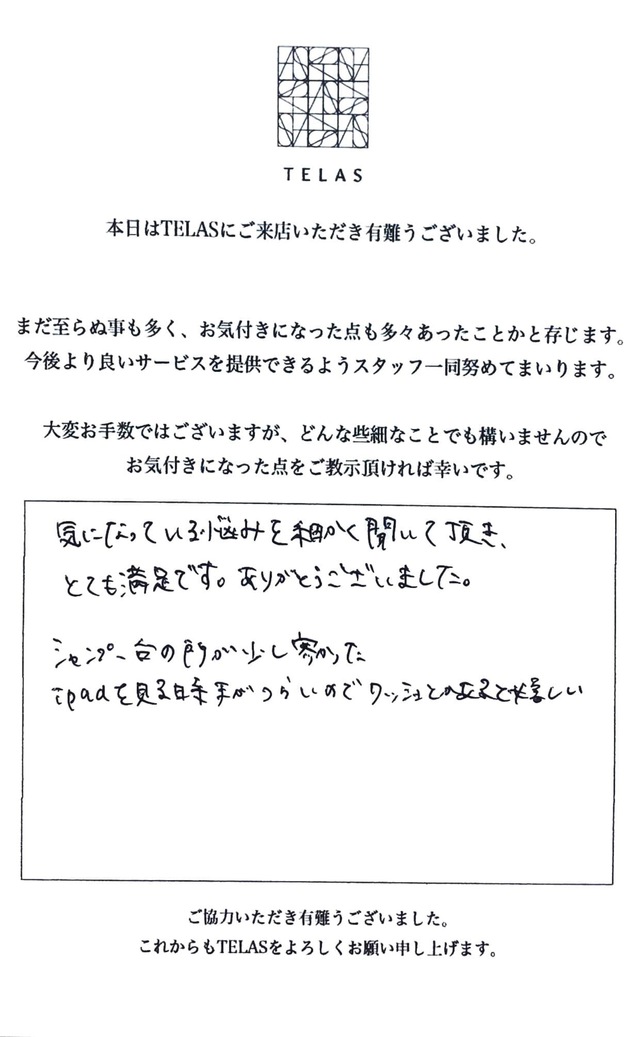 TELAS
本日はTELASにご来店いただき有難うございました。
まだ至らぬ事も多く、お気付きになった点も多々あったことかと存じます。
今後より良いサービスを提供できるようスタッフ一同努めてまいります。
大変お手数ではございますが、どんな些細なことでも構いませんので
お気付きになった点をご教示頂ければ幸いです。
気になっている悩みを細かく聞いて頂き、
とても満足です。ありがとうございました。
シャンプー台の所が少し寒かった
ipadを見る時手がつらいのでクッションとかあると嬉しい
ご協力いただき有難うございました。
これからもTELASをよろしくお願い申し上げます。